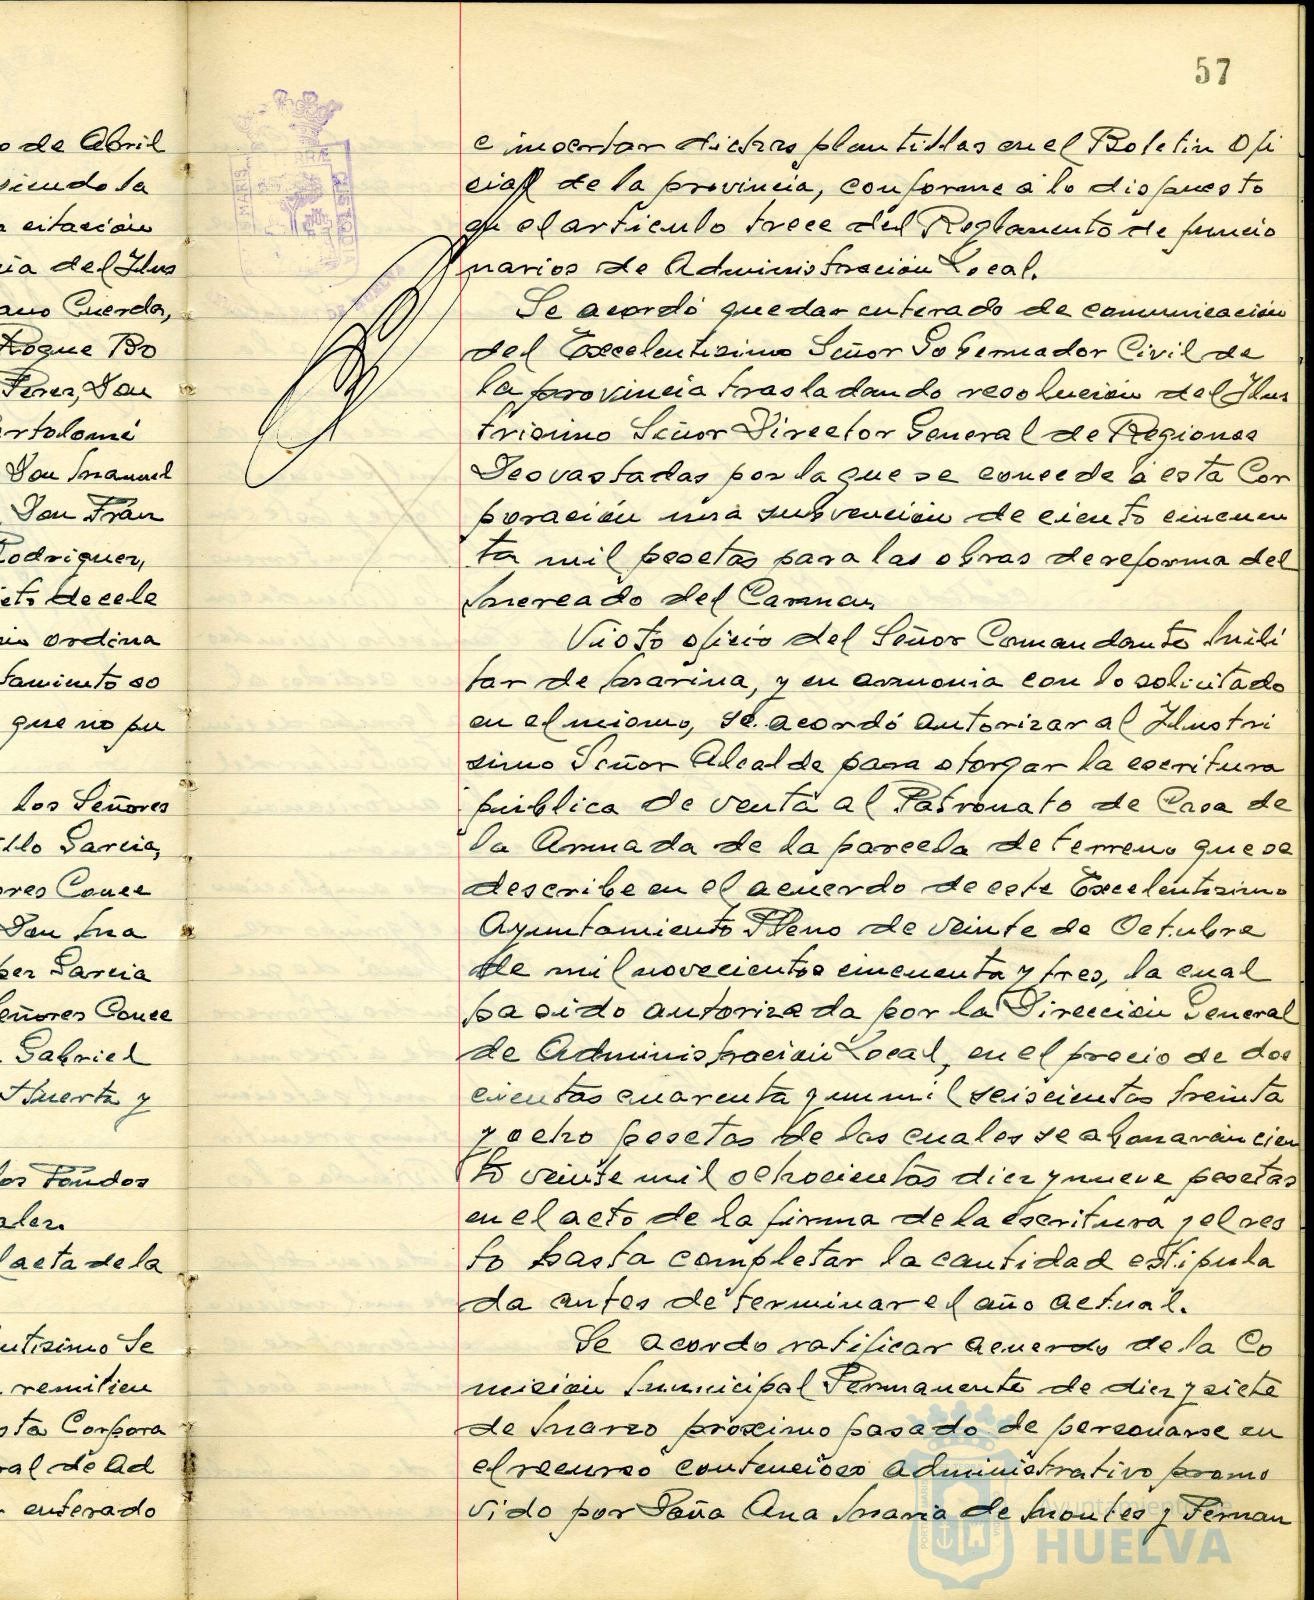 57
o de Abril
siendo la
a citación
cia del Ilus
ano Cuerda,
Roque Bo
Perez, Don
artolomé
Don Manuel
Don Fran
Rodriguez,
eto de cele
ordina
tamiento so
que no pu
los Señores
illo Garcia,
ores Conce
Don Ma
per Garcia
eñores Conce
Gabriel
Huerta y
los Fondos
ales.
l acta de la
ntisimo Se
remitien
sta Corpora
ral de Ad
enterado
e insertar dichas plantillas en el Boletin Ofi
cial de la provincia, conforme a lo dispuesto
en el articulo trece del Reglamento de funcio
narios de Administración Local.
Se acordó quedar enterado de comunicación
del Excelentisimo Señor Gobernador Civil de
la provincia trasladando resolución del Ilus
trisimo Señor Director General de Regiones
Devastadas por la que se concede á esta Cor
poración una subvención de ciento cincuen
ta mil pesetas para las obras de reforma del
Mercado del Carmen.
Visto oficio del Señor Comandante Mili
tar de Marina, y en armonia con lo solicitado
en el mismo, se acordó autorizar al Ilustri
simo Señor Alcalde para otorgar la escritura
pública de venta al Patronato de Casa de
la Armada de la parcela de terreno que se
describe en el acuerdo de este Excelentisimo
Ayuntamiento Pleno de veinte de Octubre
de mil novecientos cincuenta y tres, la cual
ha sido autorizada por la Dirección General
de Administración Local, en el precio de dos
cientas cuarenta y un mil seiscientas treinta
y ocho pesetas de las cuales se abonarán cien
to veinte mil ochocientas diez y nueve pesetas
en el acto de la firma de la escritura y el res
to hasta completar la cantidad estipula
da antes de terminar el año actual.
Se acordo ratificar acuerdo de la Co
misión Municipal Permanente de diez y siete
de Marzo próximo pasado de personarse en
el recurso contencioso administrativo promo
vido por Doña Ana Maria de Montes y Fernan
Ayuntamiento de
HUELVA